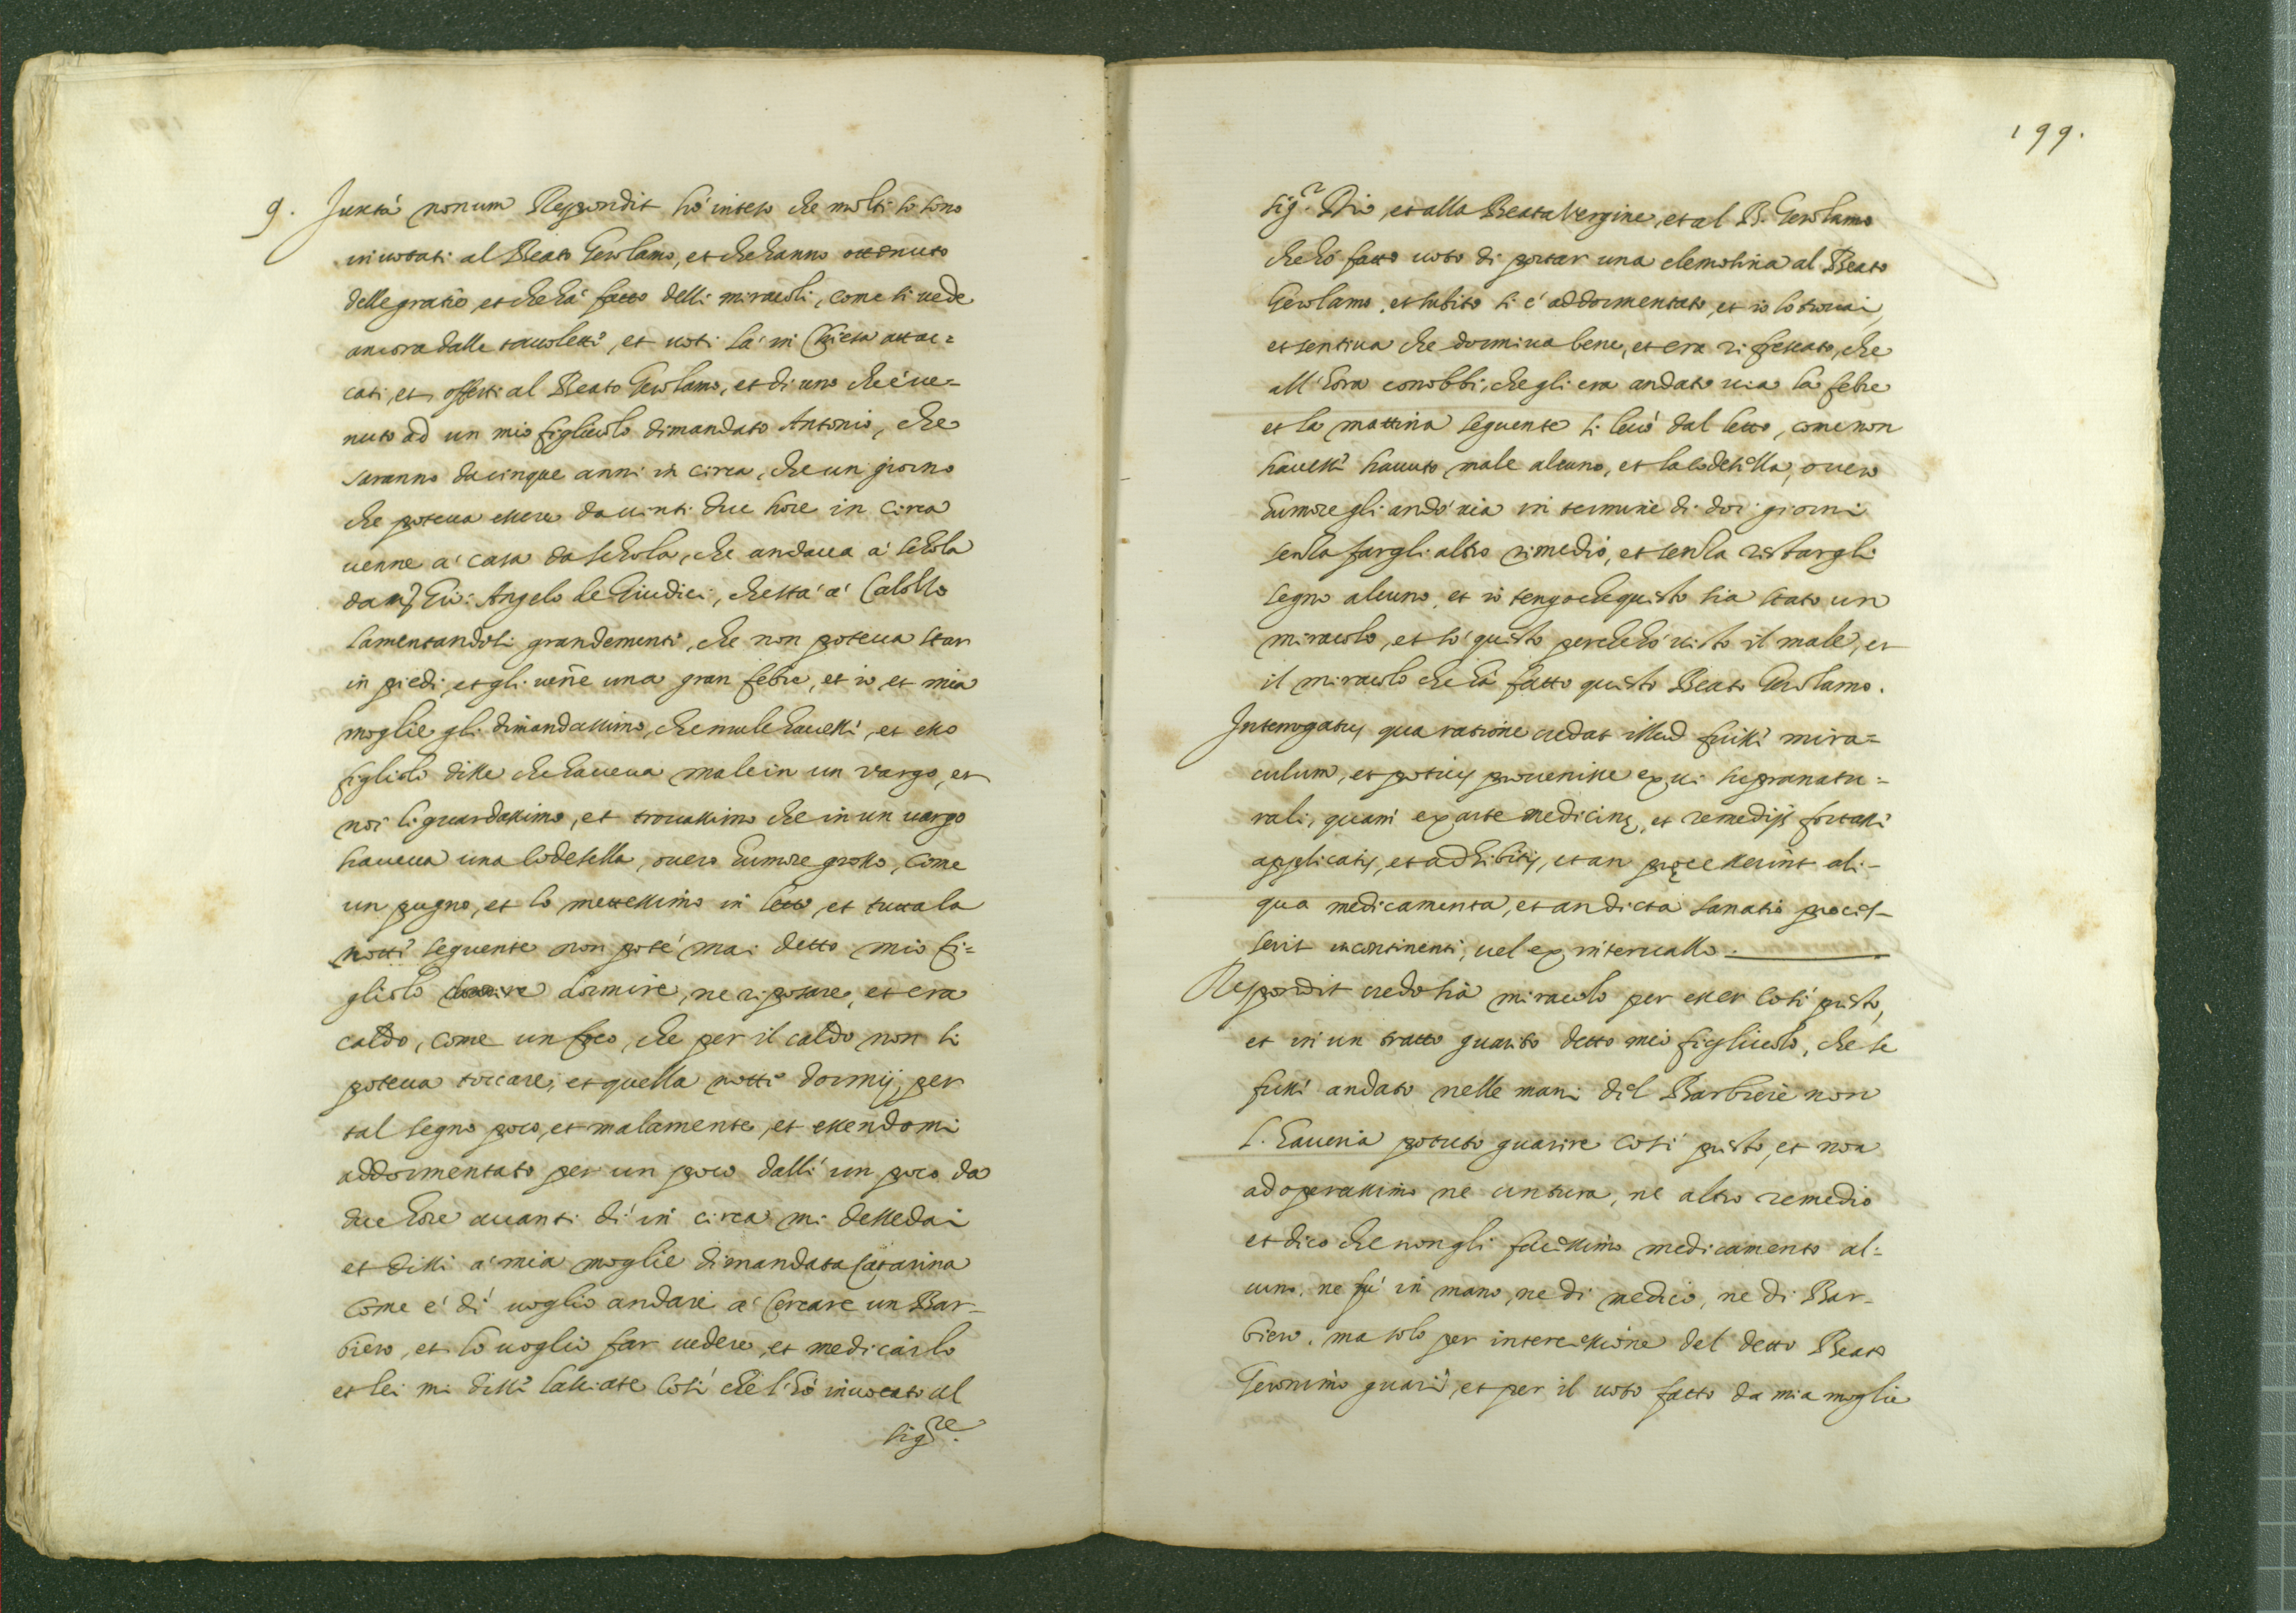 9. Juxtà nonum Respondit hò inteso che molti si sono
inuotati al Beato Gerolamo, et che hanno ottenuto
delle gratie, et che hà fatto delli miracoli, come si uede
ancora dalle tauolette, et uoti là in Chiesa attac=
cati, et offerti al Beato Gerolamo, et di uno che è ue=
nuto ad un mio figliuolo dimandato Antonio, che
saranno da cinque anni in circa, che un giorno
che poteua essere da uinti due hore in circa
uenne a' casa da schola, che andaua a' schola
da Gio: Angelo de Giudici, che stà a' Calolso
lamentandosi grandemente, che non poteua star
in piedi, et gli uen̄e una gran febre, et io, et mia
moglie gli dimandassimo, che male hauesse, et esso
figliolo disse che haueua male in un vargo, et
noi li guardassimo, et trouassimo che in un uargo
haueua una codesella, ouero humore grosso, come
un pugno, et lo mettessimo in letto, et tutta la
notte seguente non potè mai detto mio fi=
gliolo dormire, ne riposare, et era
caldo, come un foco, che per il caldo non si
poteua toccare, et quella notte dormij, per
tal segno poco, et malamente, et essendomi
addormentato per un poco dalli un poco da
due hore auanti dì in circa mi dessedai
et dissi a' mia moglie dimandata Catarina
come è dì uoglio andare a' cercare un Bar=
biero, et lo uoglio far uedere, et medicarlo
et lei mi disse lassiate così che l'hò inuocato al
Sig.re
199.
Sig.r Dio, et alla Beata Vergine, et al B. Gerolamo
che hò fatto uoto di portar una elemosina al Beato
Gerolamo, et subito si è addormentato, et io lo trouai,
et sentiua che dormiua bene, et era rifrescato, che
all'hora conobbi, che gli era andato uia la febre
et la mattina seguente si leuò dal letto, come non
hauesse hauuto male alcuno, et la codesella, ouero
humore gli andò uia in termine di doi giorni
senza fargli altro rimedio, et senza restargli
segno alcuno, et io tengo che questo sia stato un
miracolo, et sò questo perche hò uisto il male, et
il miracolo che hà fatto questo Beato Gerolamo.
Interrogatus qua ratione credat illud fuisse mira=
culum, et potius prouenisse ex ui supranatu=
rali, quam ex arte medicinę, et remedijs fortasse
applicatis, et adhibitis, et an pręcesserint ali=
qua medicamenta, et an dicta sanatio proces=
serit incontinenti, uel ex interuallo.
Respondit credo sia miracolo per esser così presto,
et in un tratto guarito detto mio figliuolo, che se
fusse andato nelle mani del Barbiere non
l'haueria potuto guarire così presto, et non
adoperassimo ne untura, ne altro remedio
et dico che non gli facessimo medicamento al=
cuno, ne fù in mano, ne di medico, ne di Bar=
biero, ma solo per intercessione del detto Beato
Geronimo guarì, et per il uoto fatto da mia moglie